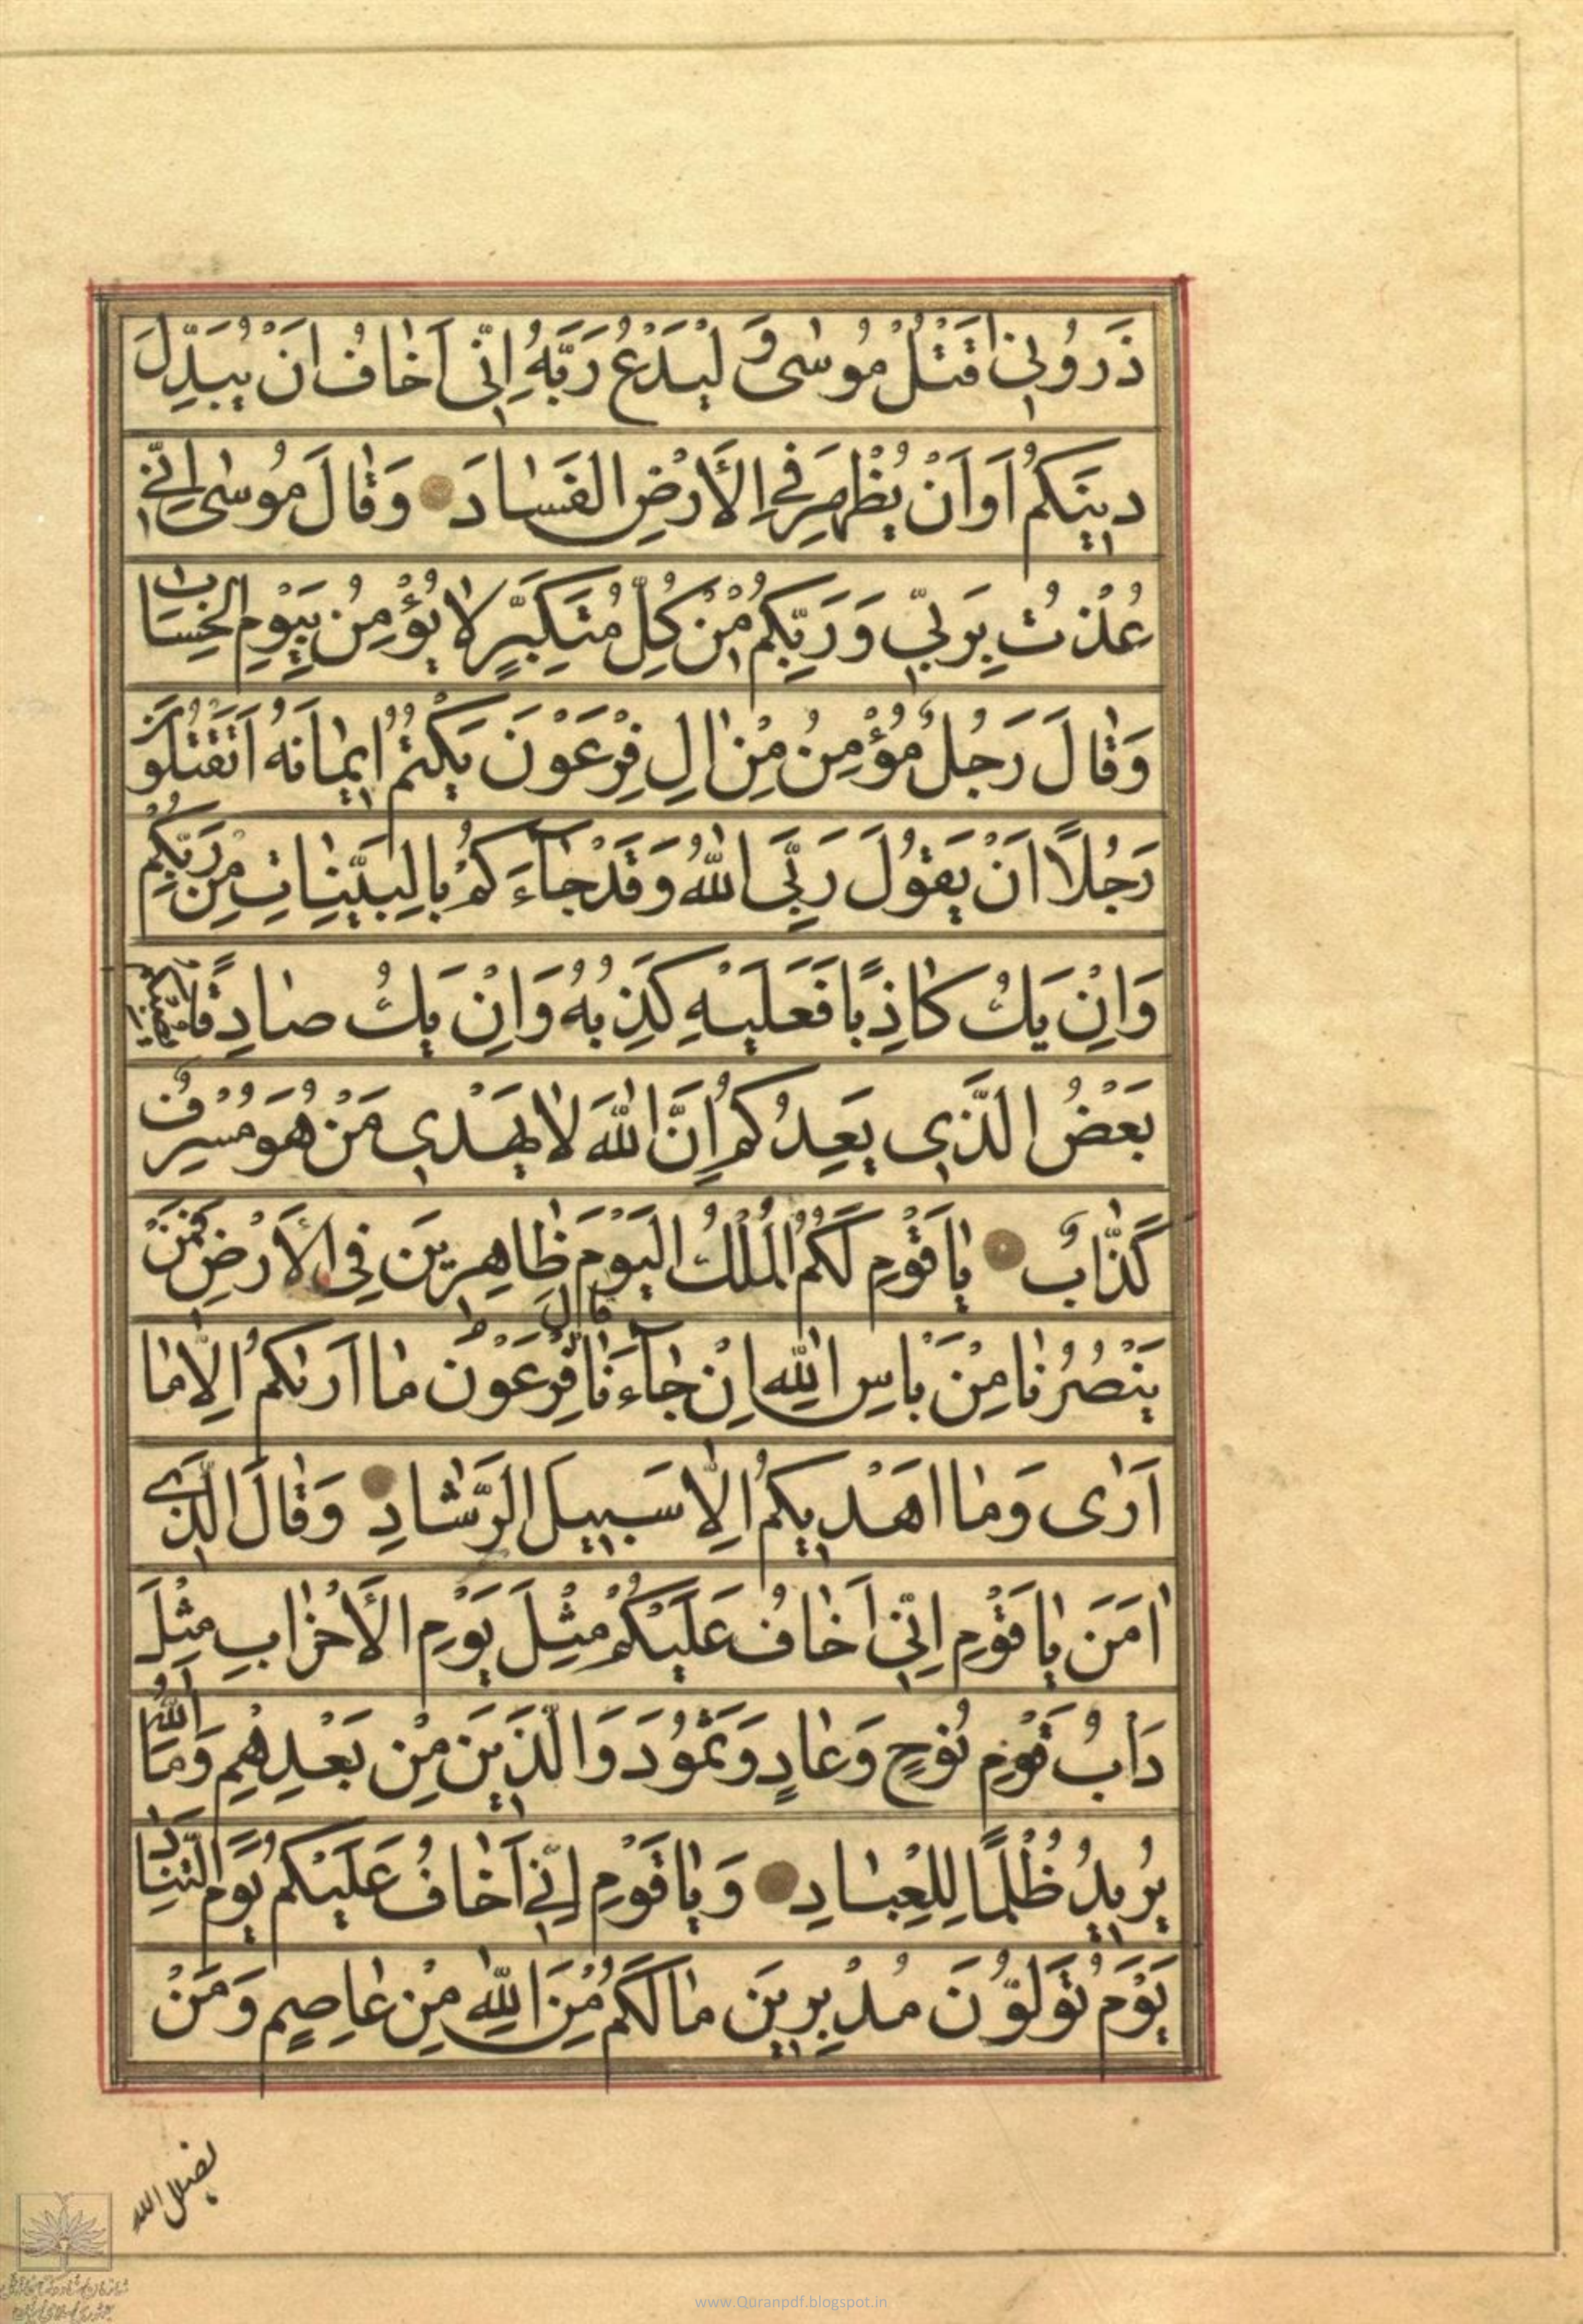 ذَرُونِي اَقْتُلْ مُوسٰى وَلْيَدْعُ رَبَّهُ اِنِّى اَخٰافُ اَنْ يُبَدِّلَ
دِينَكُمْ اَوْ اَنْ يُظْهِرَ فِي الْأَرْضِ الْفَسٰادَ وَقٰالَ مُوسٰى اِنِّي
عُذْتُ بِرَبِّي وَرَبِّكُمْ مِنْ كُلِّ مُتَكَبِّرٍ لٰا يُؤْمِنُ بِيَوْمِ الْحِسٰابِ
وَقٰالَ رَجُلٌ مُؤْمِنٌ مِنْ اٰلِ فِرْعَوْنَ يَكْتُمُ اِيمٰانَهُ اَتَقْتُلُونَ
رَجُلًا اَنْ يَقُولَ رَبِّىَ اللّٰهُ وَقَدْ جٰاءَكُمْ بِالْبَيِّنٰاتِ مِنْ رَبِّكُمْ
وَاِنْ يَكُ كٰاذِبًا فَعَلَيْهِ كَذِبُهُ وَاِنْ يَكُ صٰادِقًا يُصِبْكُمْ
بَعْضُ الَّذِي يَعِدُكُمْ اِنَّ اللّٰهَ لٰا يَهْدِي مَنْ هُوَ مُسْرِفٌ
كَذّٰابٌ يٰا قَوْمِ لَكُمُ الْمُلْكُ الْيَوْمَ ظٰاهِرِينَ فِي الْأَرْضِ فَمَنْ
يَنْصُرُنٰا مِنْ بَأْسِ اللّٰهِ اِنْ جٰاءَنٰا قٰالَ فِرْعَوْنُ مٰا اُرِيكُمْ اِلّٰا مٰا
اَرٰى وَمٰا اَهْدِيكُمْ اِلّٰا سَبِيلَ الرَّشٰادِ وَقٰالَ الَّذِي
اٰمَنَ يٰا قَوْمِ اِنِّي اَخٰافُ عَلَيْكُمْ مِثْلَ يَوْمِ الْأَحْزٰابِ مِثْلَ
دَأْبِ قَوْمِ نُوحٍ وَعٰادٍ وَثَمُودَ وَالَّذِينَ مِنْ بَعْدِهِمْ وَمَا اللّٰهُ
يُرِيدُ ظُلْمًا لِلْعِبٰادِ وَيٰا قَوْمِ اِنِّي اَخٰافُ عَلَيْكُمْ يَوْمَ التَّنٰادِ
يَوْمَ تُوَلُّونَ مُدْبِرِينَ مٰا لَكُمْ مِنَ اللّٰهِ مِنْ عٰاصِمٍ وَمَنْ
يضلل الله
www.Quranpdf.blogspot.in